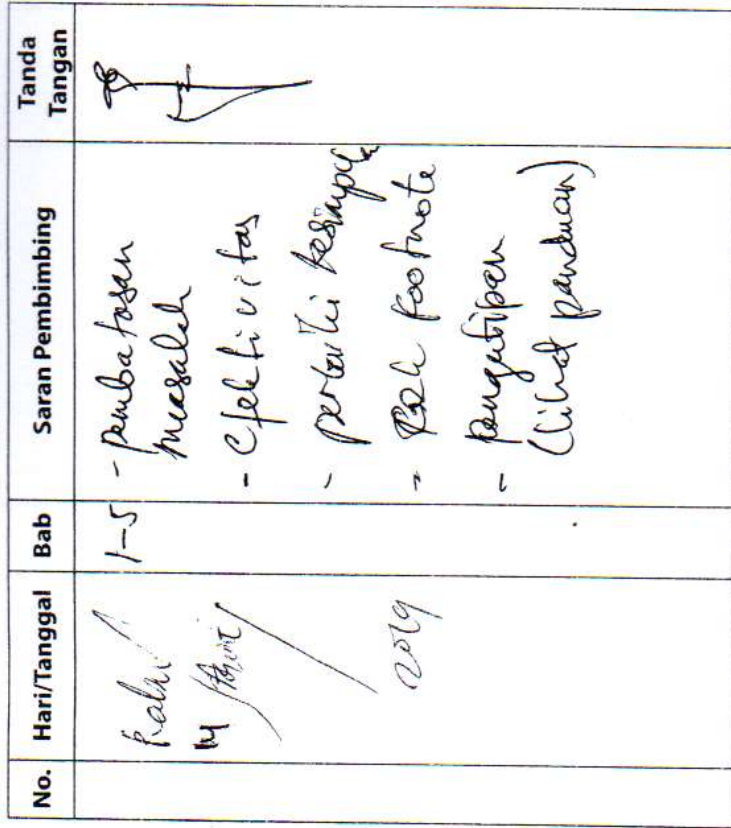 No. Hari/Tanggal Bab Saran Pembimbing Tanda Tangan
1-5
- pembatasan
masalah
- efektivitas
- perbaiki kesimpula
- footnote
- pengutipan
(lihat panduan)
2019